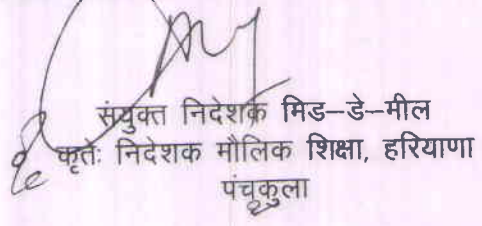 संयुक्त निदेशक मिड–डे–मील
कृतेः निदेशक मौलिक शिक्षा, हरियाणा
पंचकुला